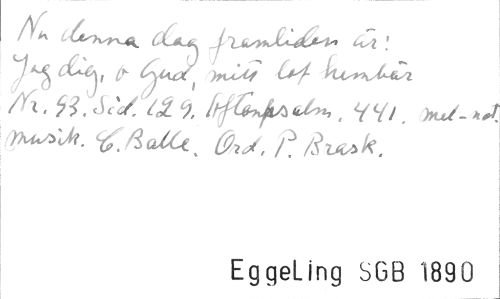 Nu denna dag framliden är!
Jag dig, o Gud, mitt lof hembär
Nr. 93. Sid. 129. Aftonpsalm. 441. mel-not.
musik. C. Balle. Ord. P. Brask.
EggeLing SGB 1890